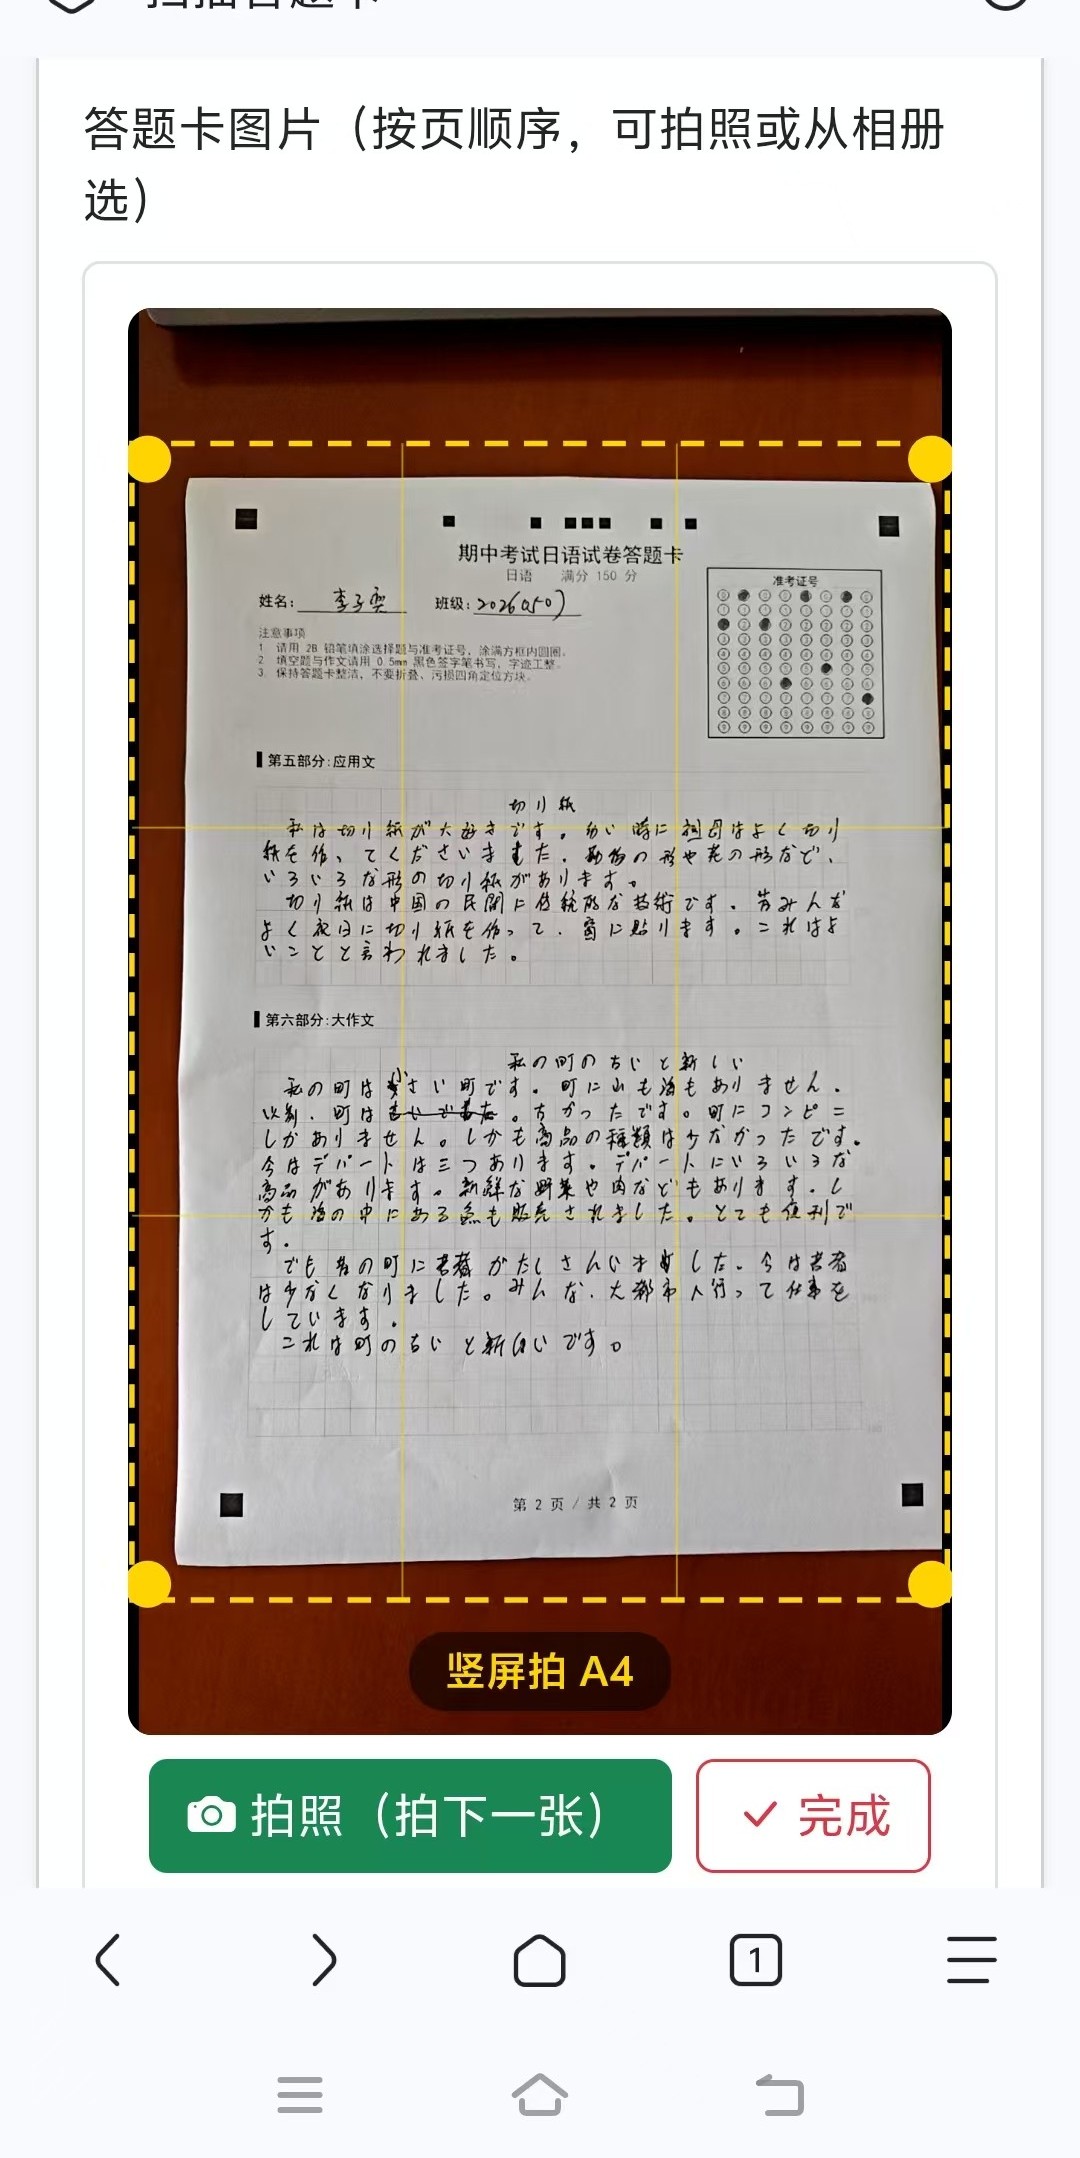 答题卡图片（按页顺序，可拍照或从相册
选）
期中考试日语试卷答题卡
日语 满分 150 分
准考证号
姓名：李子奕 班级：
注意事项
1 请用 2B 铅笔填涂选择题与准考证号，涂满方框内圆圈。
2 填空题与作文请用 0.5mm 黑色签字笔书写，字迹工整。
3. 保持答题卡整洁，不要折叠、污损四角定位方块。
第五部分:应用文
切り紙
私は切り紙が大好きです。幼い時に祖母はよく切り
紙を作ってくださいました。動物の形や花の形など、
いろいろな形の切り紙があります。
切り紙は中国の民間に伝統的な技術です。昔みんな
よく祝日に切り紙を作って、窓に貼ります。これはよ
いことと言われました。
第六部分:大作文
私の町の古いと新しい
私の町は小さい町です。町に山も海もありません。
以前、町は。古かったです。町にコンビニ
しかありません。しかも商品の種類は少なかったです。
今はデパートは三つあります。デパートにいろいろな
商品があります。新鮮な野菜や肉などもあります。し
かも海の中にある魚も販売されました。とても便利で
す。
でも昔の町に若者がたくさんいました。今は若者
は少なくなりました。みんな、大都市へ行って仕事を
しています。
これは町の古いと新しいです。
第 2 页 / 共 2 页
竖屏拍 A4
拍照（拍下一张）
完成
1